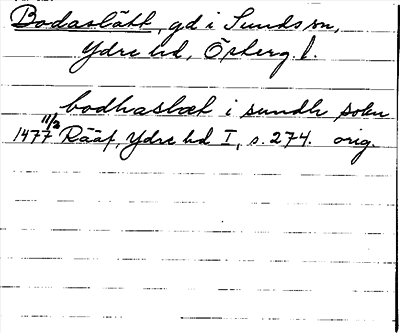 Bodaslätt, gd i Sunds sn,
Ydre hd, Österg. l.
bodhaslæt i sundh sokn
1477 11/3 Rääf, Ydre hd I, s. 274. orig.